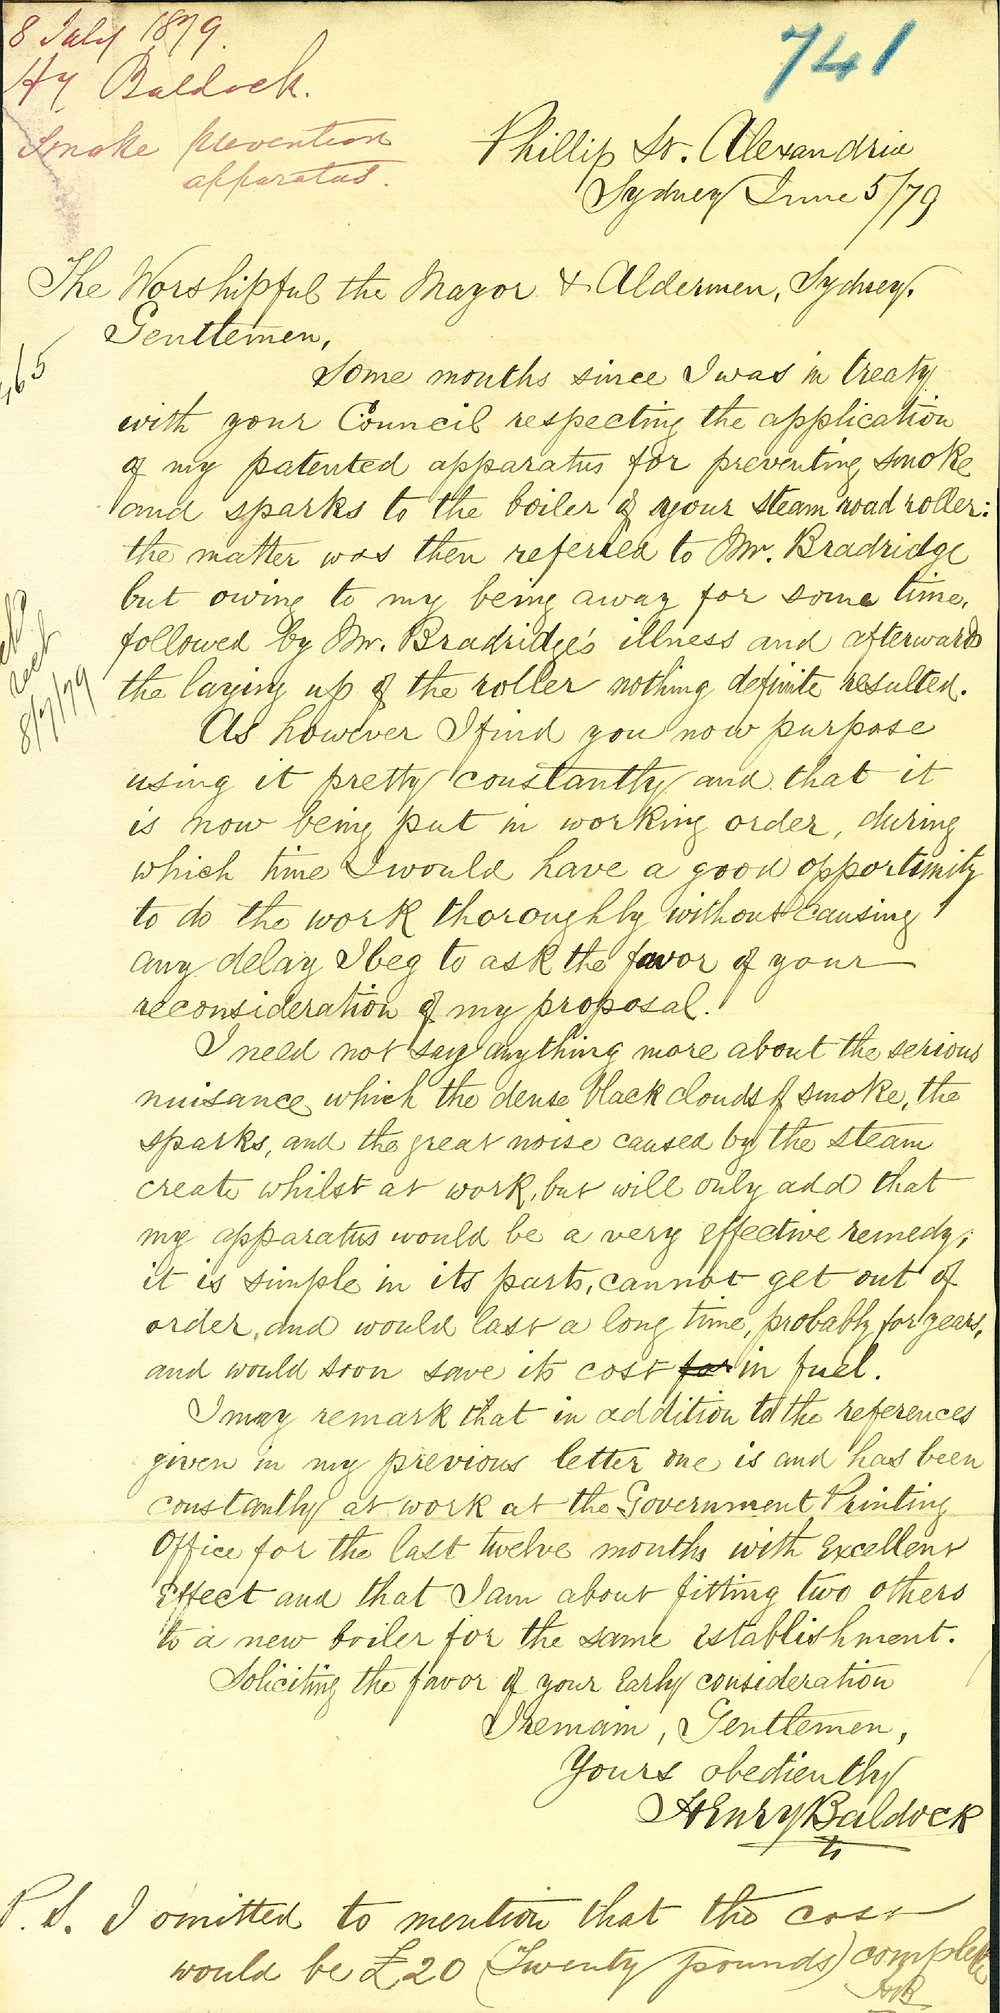 8 July 1879.
Hy Baldock.
Smoke prevention
apparatus.
741
Phillip St. Alexandria
Sydney June 5/79
The Worshipful the Mayor & Aldermen, Sydney.
Gentlemen,
465
Some months since I was in treaty
with your Council respecting the application
of my patented apparatus for preventing smoke
and sparks to the boiler of your steam road roller:
the matter was then referred to Mr. Bradridge
but owing to my being away for some time,
followed by Mr. Bradridge's illness and afterwards
the laying up of the roller nothing definite resulted.
8/7/79
As however I find you now purpose
using it pretty constantly and that it
is now being put in working order, during
which time I would have a good opportunity
to do the work thoroughly without causing
any delay I beg to ask the favor of your
reconsideration of my proposal.
I need not say anything more about the serious
nuisance which the dense black clouds of smoke, the
sparks, and the great noise caused by the steam
create whilst at work, but will only add that
my apparatus would be a very effective remedy;
it is simple in its parts, cannot get out of
order, and would last a long time, probably for years,
and would soon save its cost for in fuel.
I may remark that in addition to the references
given in my previous letter one is and has been
constantly at work at the Government Printing
Office for the last twelve months with Excellent
Effect and that I am about fitting two others
to a new boiler for the same establishment.
Soliciting the favor of your Early consideration
I remain, Gentlemen,
Yours obediently
Henry Baldock
P.S. I omitted to mention that the cost
would be £20 (Twenty pounds) complete
HB